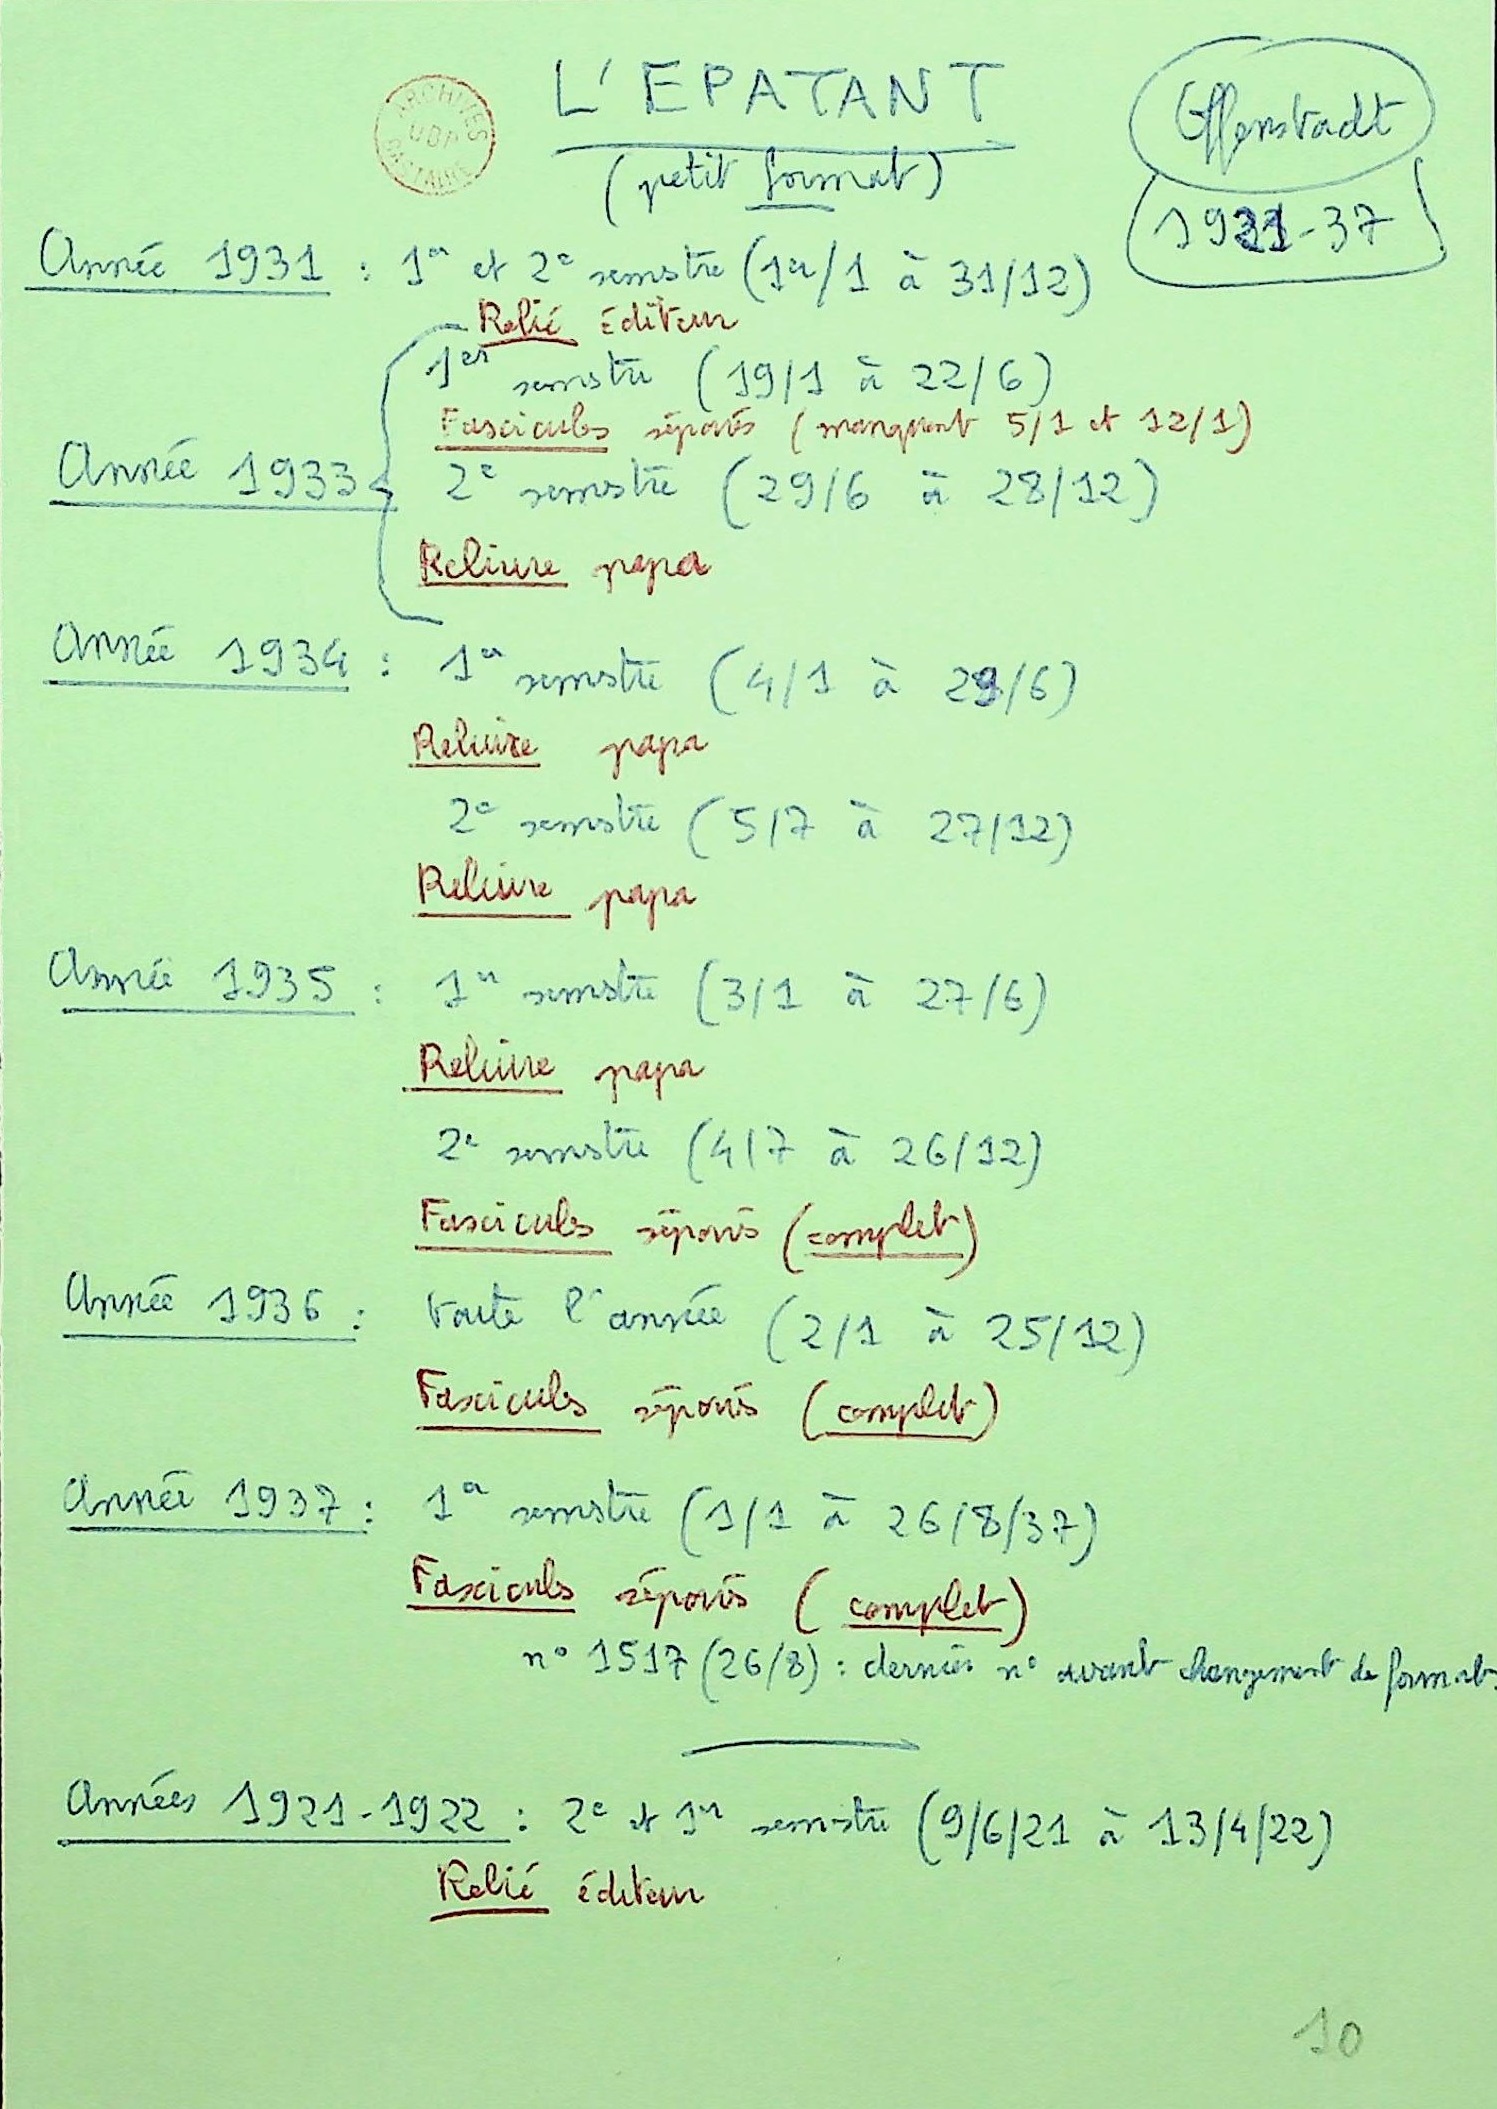 L'EPATANT
(petit format)
Offenstadt
1921-37
ARCHIVES
Année 1931 : 1er et 2e semstre (1er/1 à 31/12)
Relié éditeur
1er semstre (19/1 à 22/6)
Fascicules séparés (manquent 5/1 et 12/1)
Année 1933
2e semstre (29/6 à 28/12)
Reliure papa
Année 1934 : 1er semstre (4/1 à 29/6)
Reliure papa
2e semstre (5/7 à 27/12)
Reliure papa
Année 1935 : 1er semstre (3/1 à 27/6)
Reliure papa
2e semstre (4/7 à 26/12)
Fascicules séparés (complet)
Année 1936 : toute l'année (2/1 à 25/12)
Fascicules séparés (complet)
Année 1937 : 1er semstre (1/1 à 26/8/37)
Fascicules séparés (complet)
n° 1517 (26/8) : dernier n° avant changement de format.
Années 1921-1922 : 2e et 1er semestre (9/6/21 à 13/4/22)
Relié éditeur
10